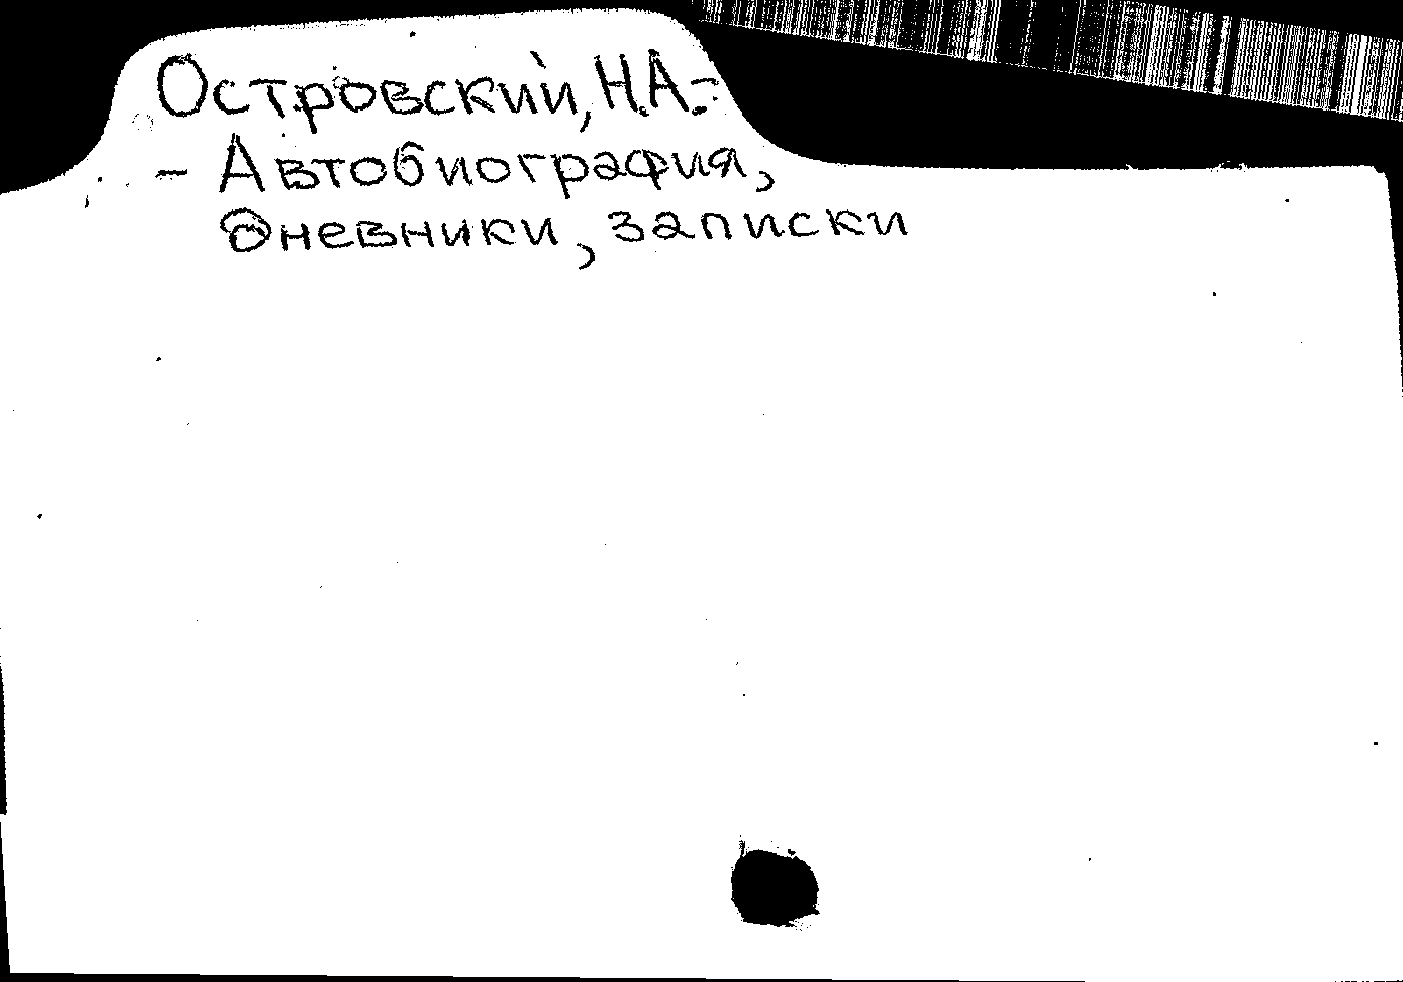 Островский, Н.А.-
- Автобиография,
дневники, записки